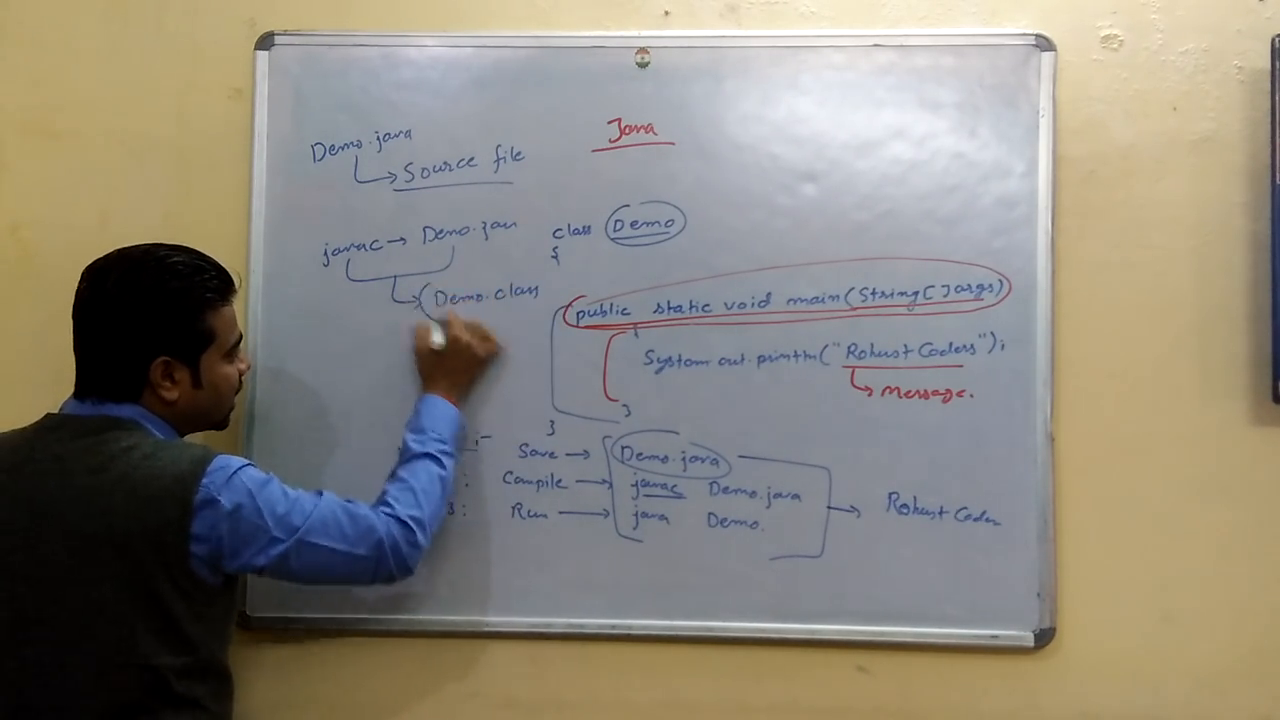 Java
Demo.java
Source file
javac → Demo.java
Demo.class
class Demo
{
public static void main(String[]args)
{
System.out.println("Robust Coders");
message.
}
}
Save → Demo.java
: Compile → javac Demo.java
3: Run → java Demo.
→ Robust Coder